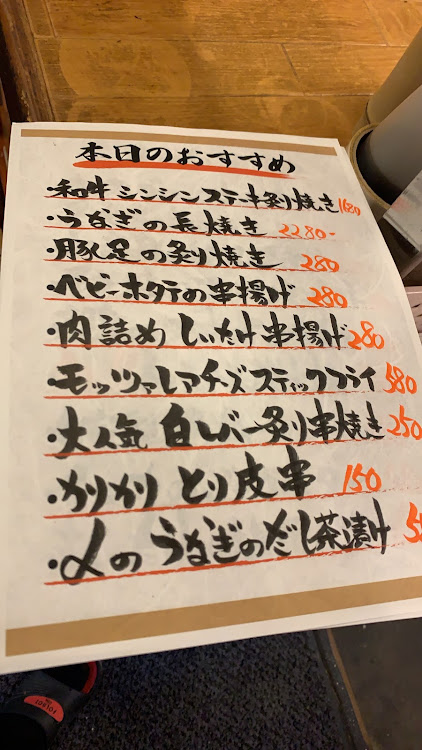 本日のおすすめ
・和牛シンシンステーキ炙り焼き 1680
・うなぎの長焼き 2280-
・豚足の炙り焼き 280
・ベビーホタテの串揚げ 280
・肉詰めしいたけ串揚げ 280
・モッツァレアチーズスティックフライ 580
・大人気 白レバー炙り串焼き 250
・かりかり とり皮串 150
・〆のうなぎのだし茶漬け